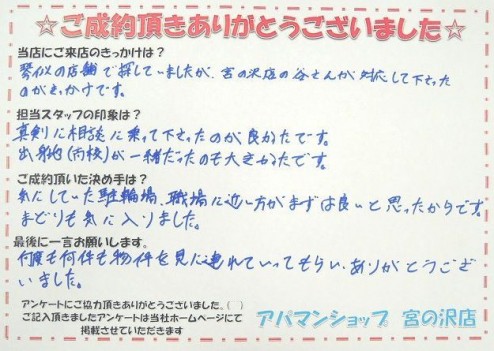 ☆ご成約頂きありがとうございました☆
当店にご来店のきっかけは？
琴似の店舗で探していましたが、宮の沢店の谷さんが対応して下さった
のがきっかけです。
担当スタッフの印象は？
真剣に相談に乗って下さったのが良かったです。
出身地(両校)が一緒だったのも大きかったです。
ご成約頂いた決め手は？
気にしていた駐輪場、職場に近い方がまずは良いと思ったからです。
まどりも気に入りました。
最後に一言お願いします。
何度も何件も物件を見に連れていってもらい、ありがとうござ
いました。
アンケートにご協力頂きありがとうございました。( )
ご記入頂きましたアンケートは当社ホームページにて
掲載させていただきます
アパマンショップ 宮の沢店